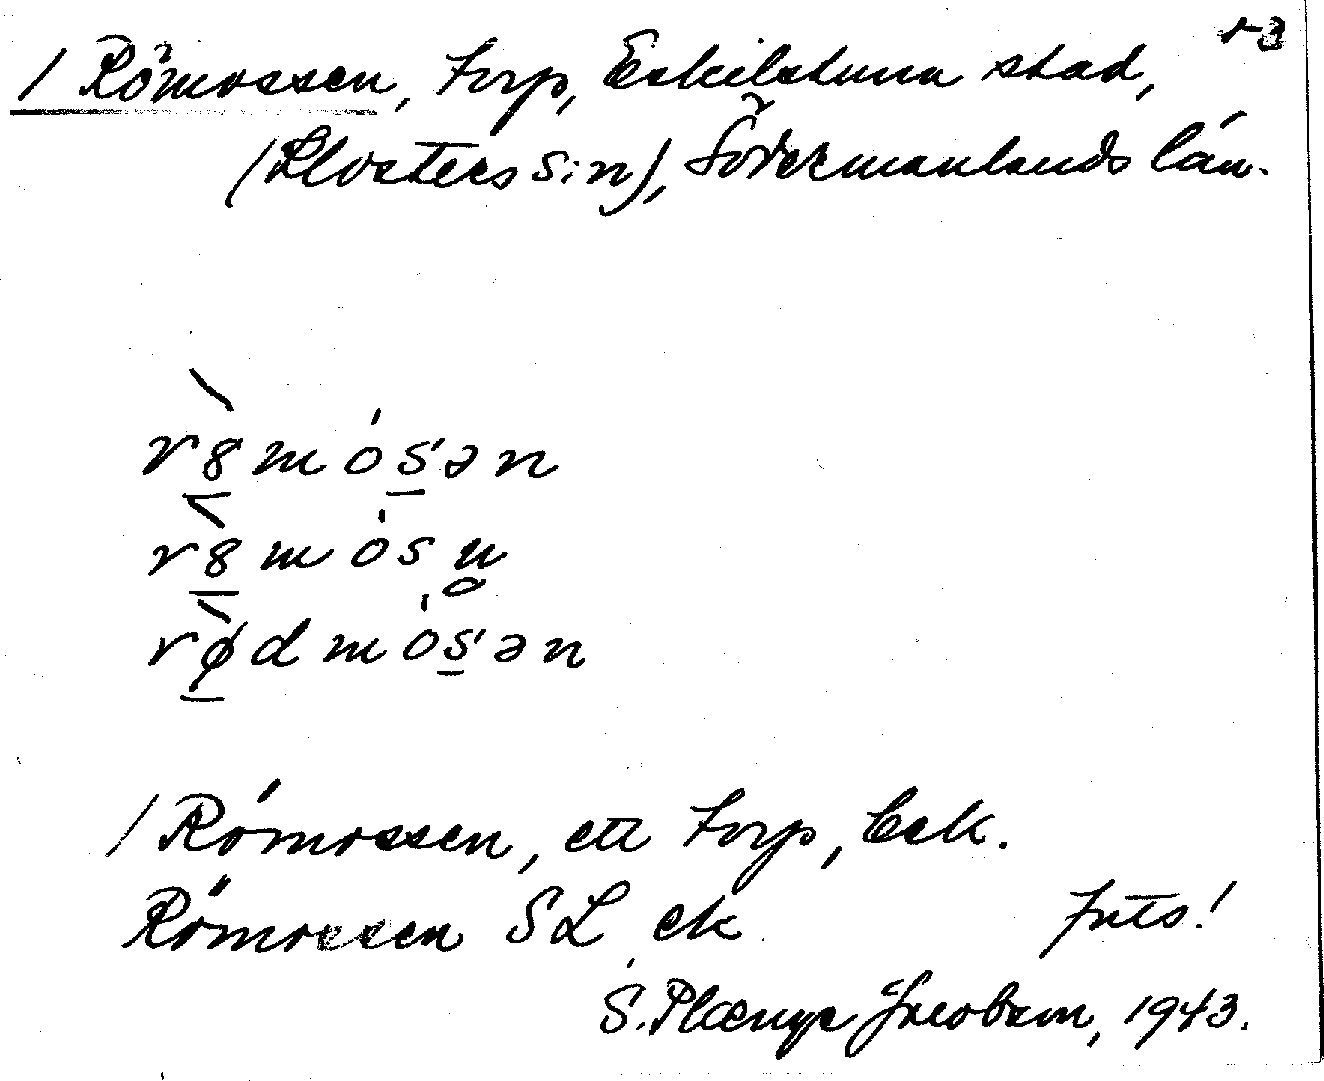 / Römossen, torp, Eskilstuna stad,
(Klosters s:n), Södermanlands län.
r8mósən
r8mósn̥
rødmósən
/ Römossen, ett torp, bek.
Römossen SL ek Jnts!
S. Plænge Jacobson, 1943.